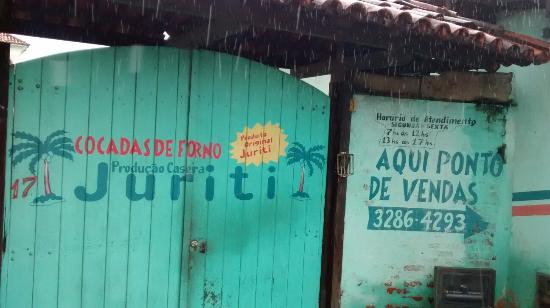 COCADAS DE FORNO
Produção Casera
Juriti
Produto
Original
Juriti
17
Horario de Atendimento
SEGUNDA A SEXTA
7hs as 12hs
13hs as 17hs
AQUI PONTO
DE VENDAS
3286-4293